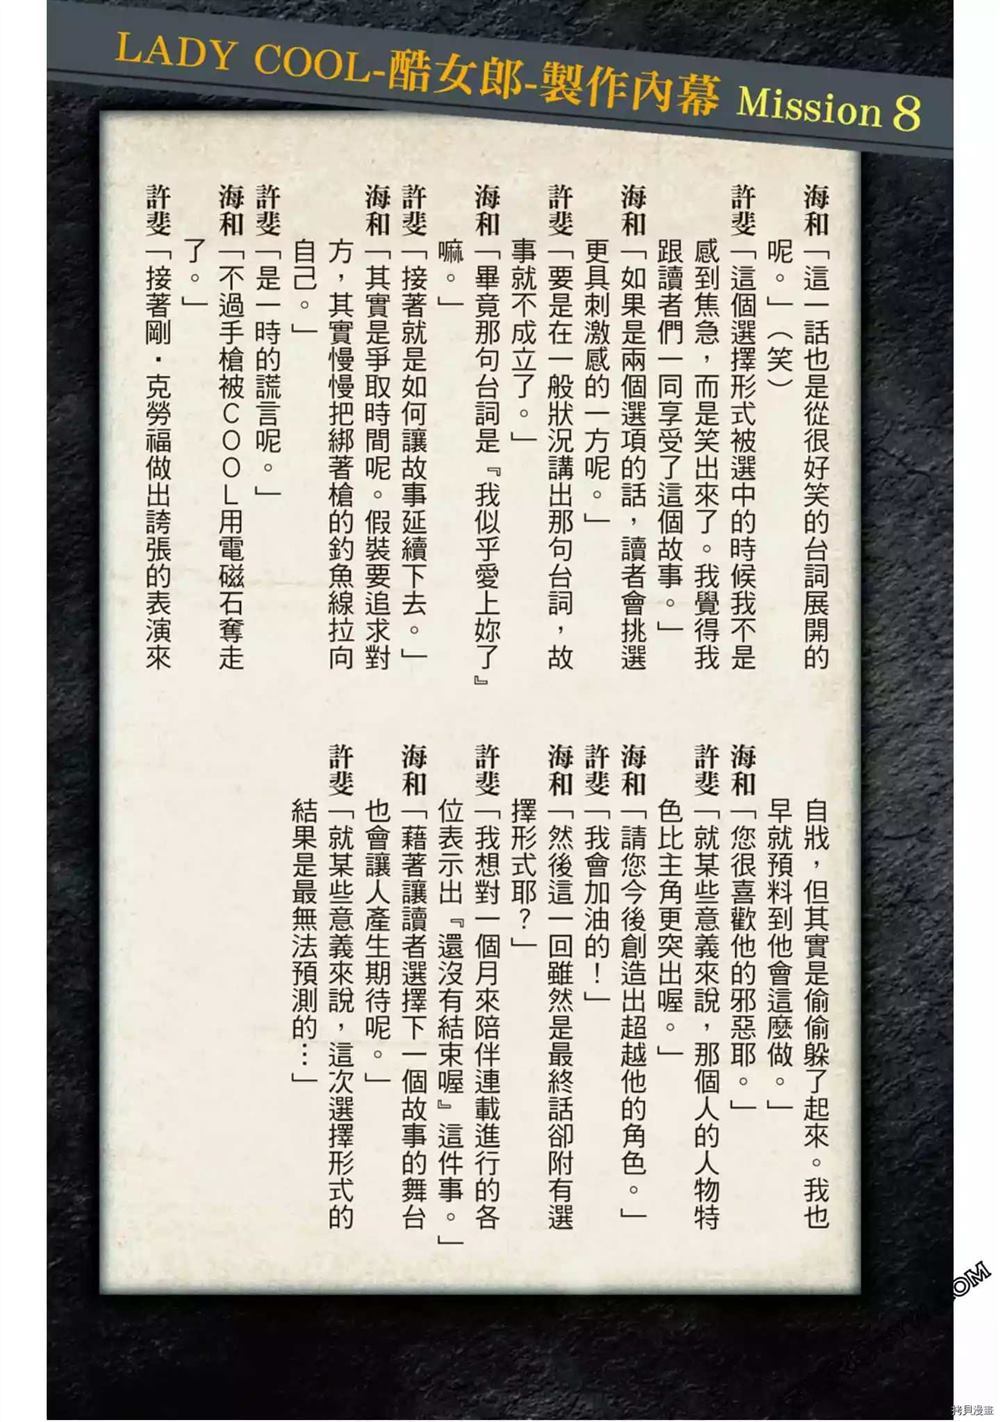 LADY COOL-酷女郎-製作內幕 Mission 8
海和「這一話也是從很好笑的台詞展開的
呢。」（笑）
許斐「這個選擇形式被選中的時候我不是
感到焦急，而是笑出來了。我覺得我
跟讀者們一同享受了這個故事。」
海和「如果是兩個選項的話，讀者會挑選
更具刺激感的一方呢。」
許斐「要是在一般狀況講出那句台詞，故
事就不成立了。」
海和「畢竟那句台詞是『我似乎愛上妳了』
嘛。」
許斐「接著就是如何讓故事延續下去。」
海和「其實是爭取時間呢。假裝要追求對
方，其實慢慢把綁著槍的釣魚線拉向
自己。」
許斐「是一時的謊言呢。」
海和「不過手槍被COOL用電磁石奪走
了。」
許斐「接著剛·克勞福做出誇張的表演來
自戕，但其實是偷偷躲了起來。我也
早就預料到他會這麼做。」
海和「您很喜歡他的邪惡耶。」
許斐「就某些意義來說，那個人的人物特
色比主角更突出喔。」
海和「請您今後創造出超越他的角色。」
許斐「我會加油的！」
海和「然後這一回雖然是最終話卻附有選
擇形式耶？」
許斐「我想對一個月來陪伴連載進行的各
位表示出『還沒有結束喔』這件事。」
海和「藉著讓讀者選擇下一個故事的舞台
也會讓人產生期待呢。」
許斐「就某些意義來說，這次選擇形式的
結果是最無法預測的…」
拷貝漫畫